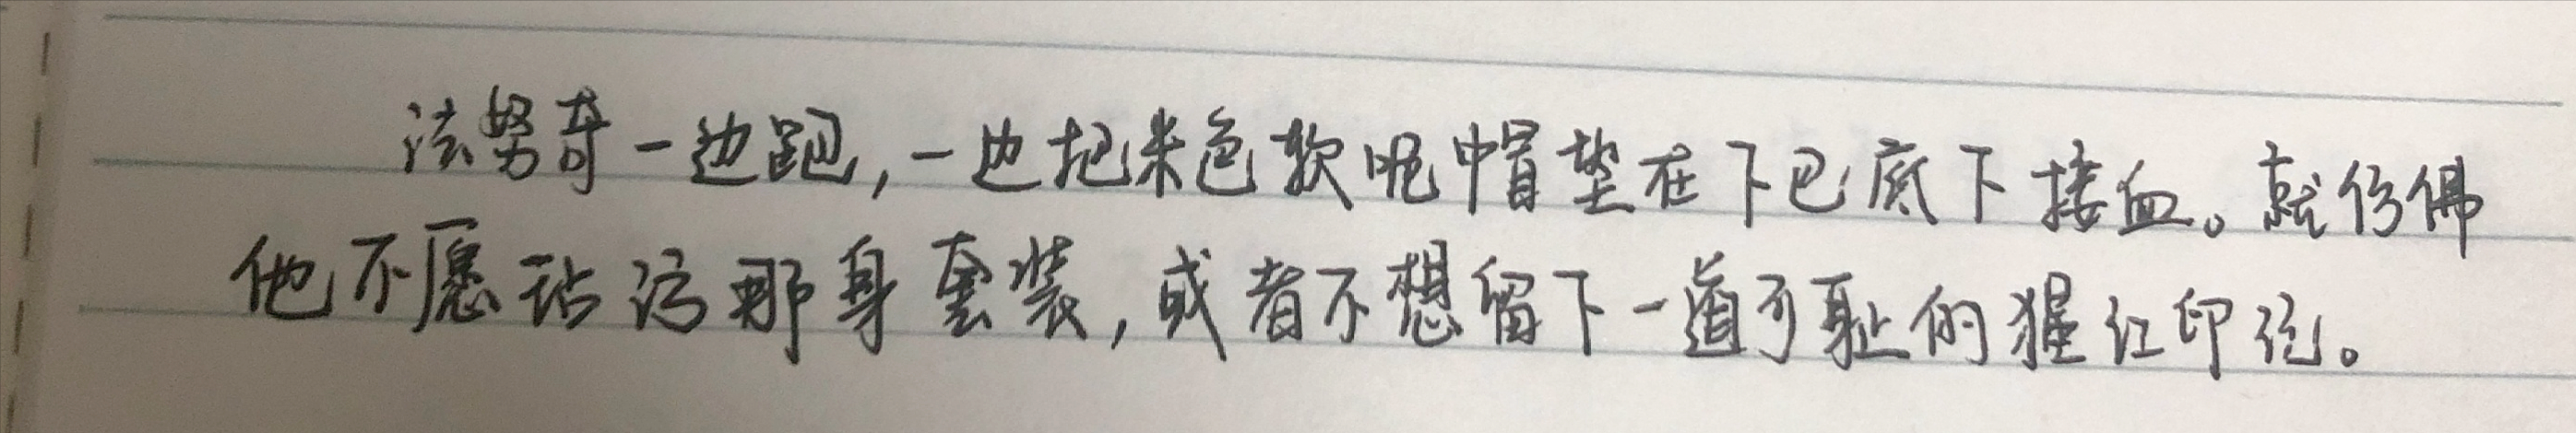 法努奇一边跑，一边把米色软呢帽垫在下巴底下接血。就仿佛
他不愿玷污那身套装，或者不想留下一道可耻的猩红印记。